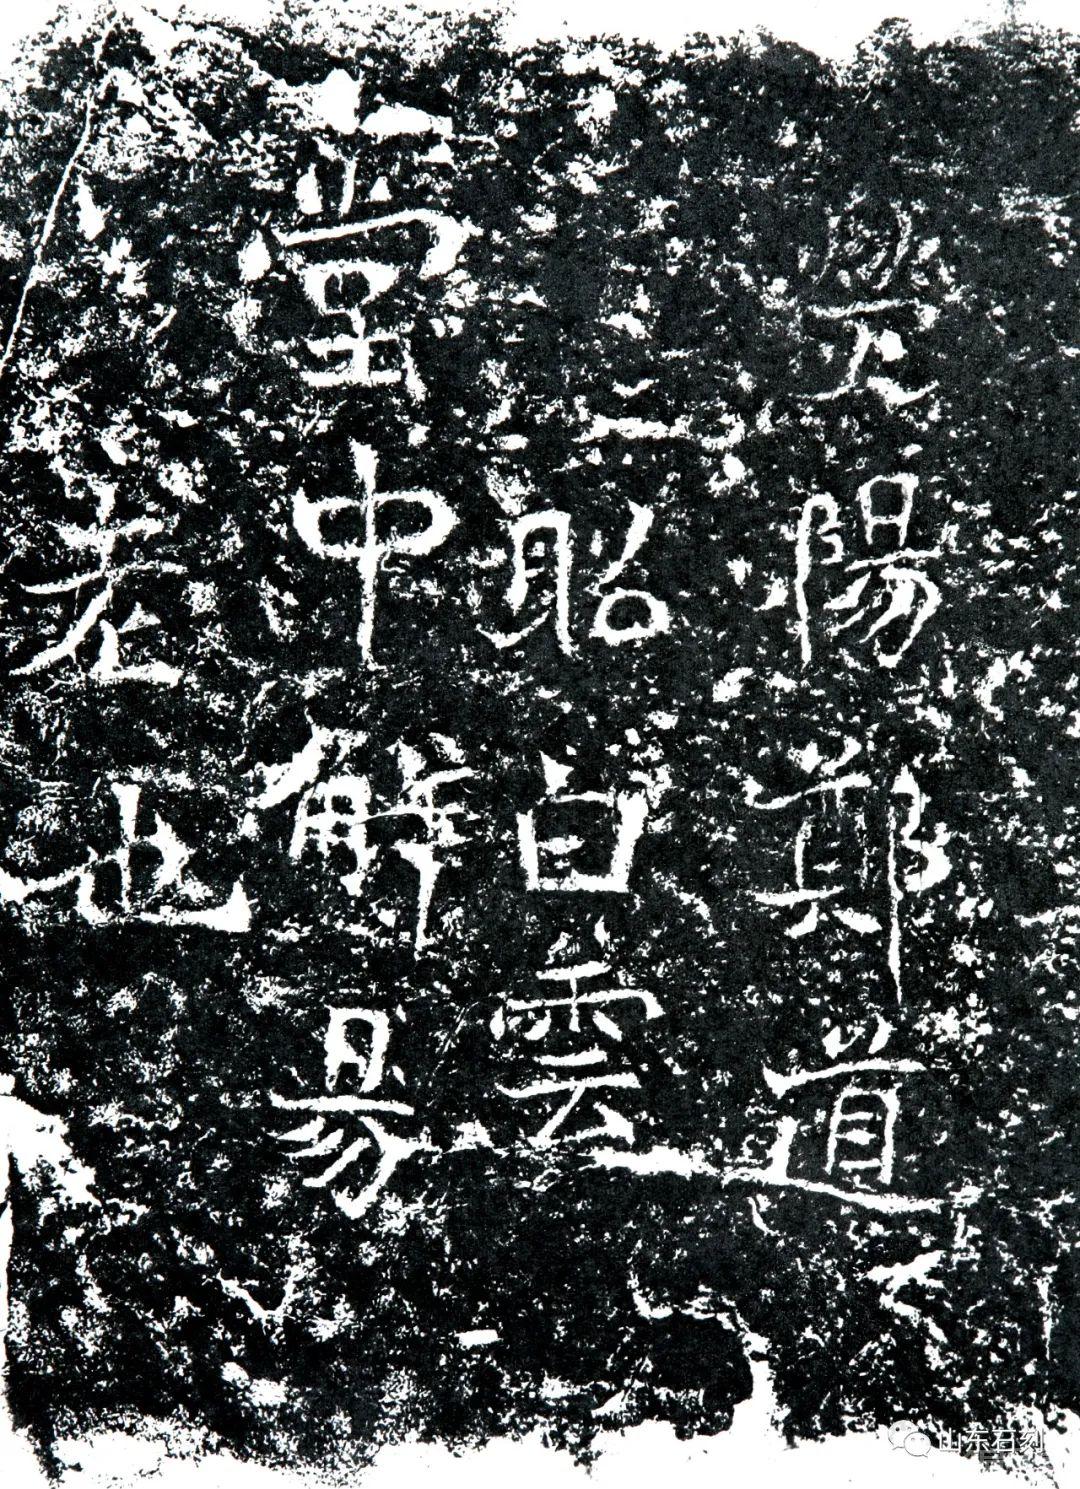 熒陽鄭道
昭白雲
堂中解易
老也
山东石刻